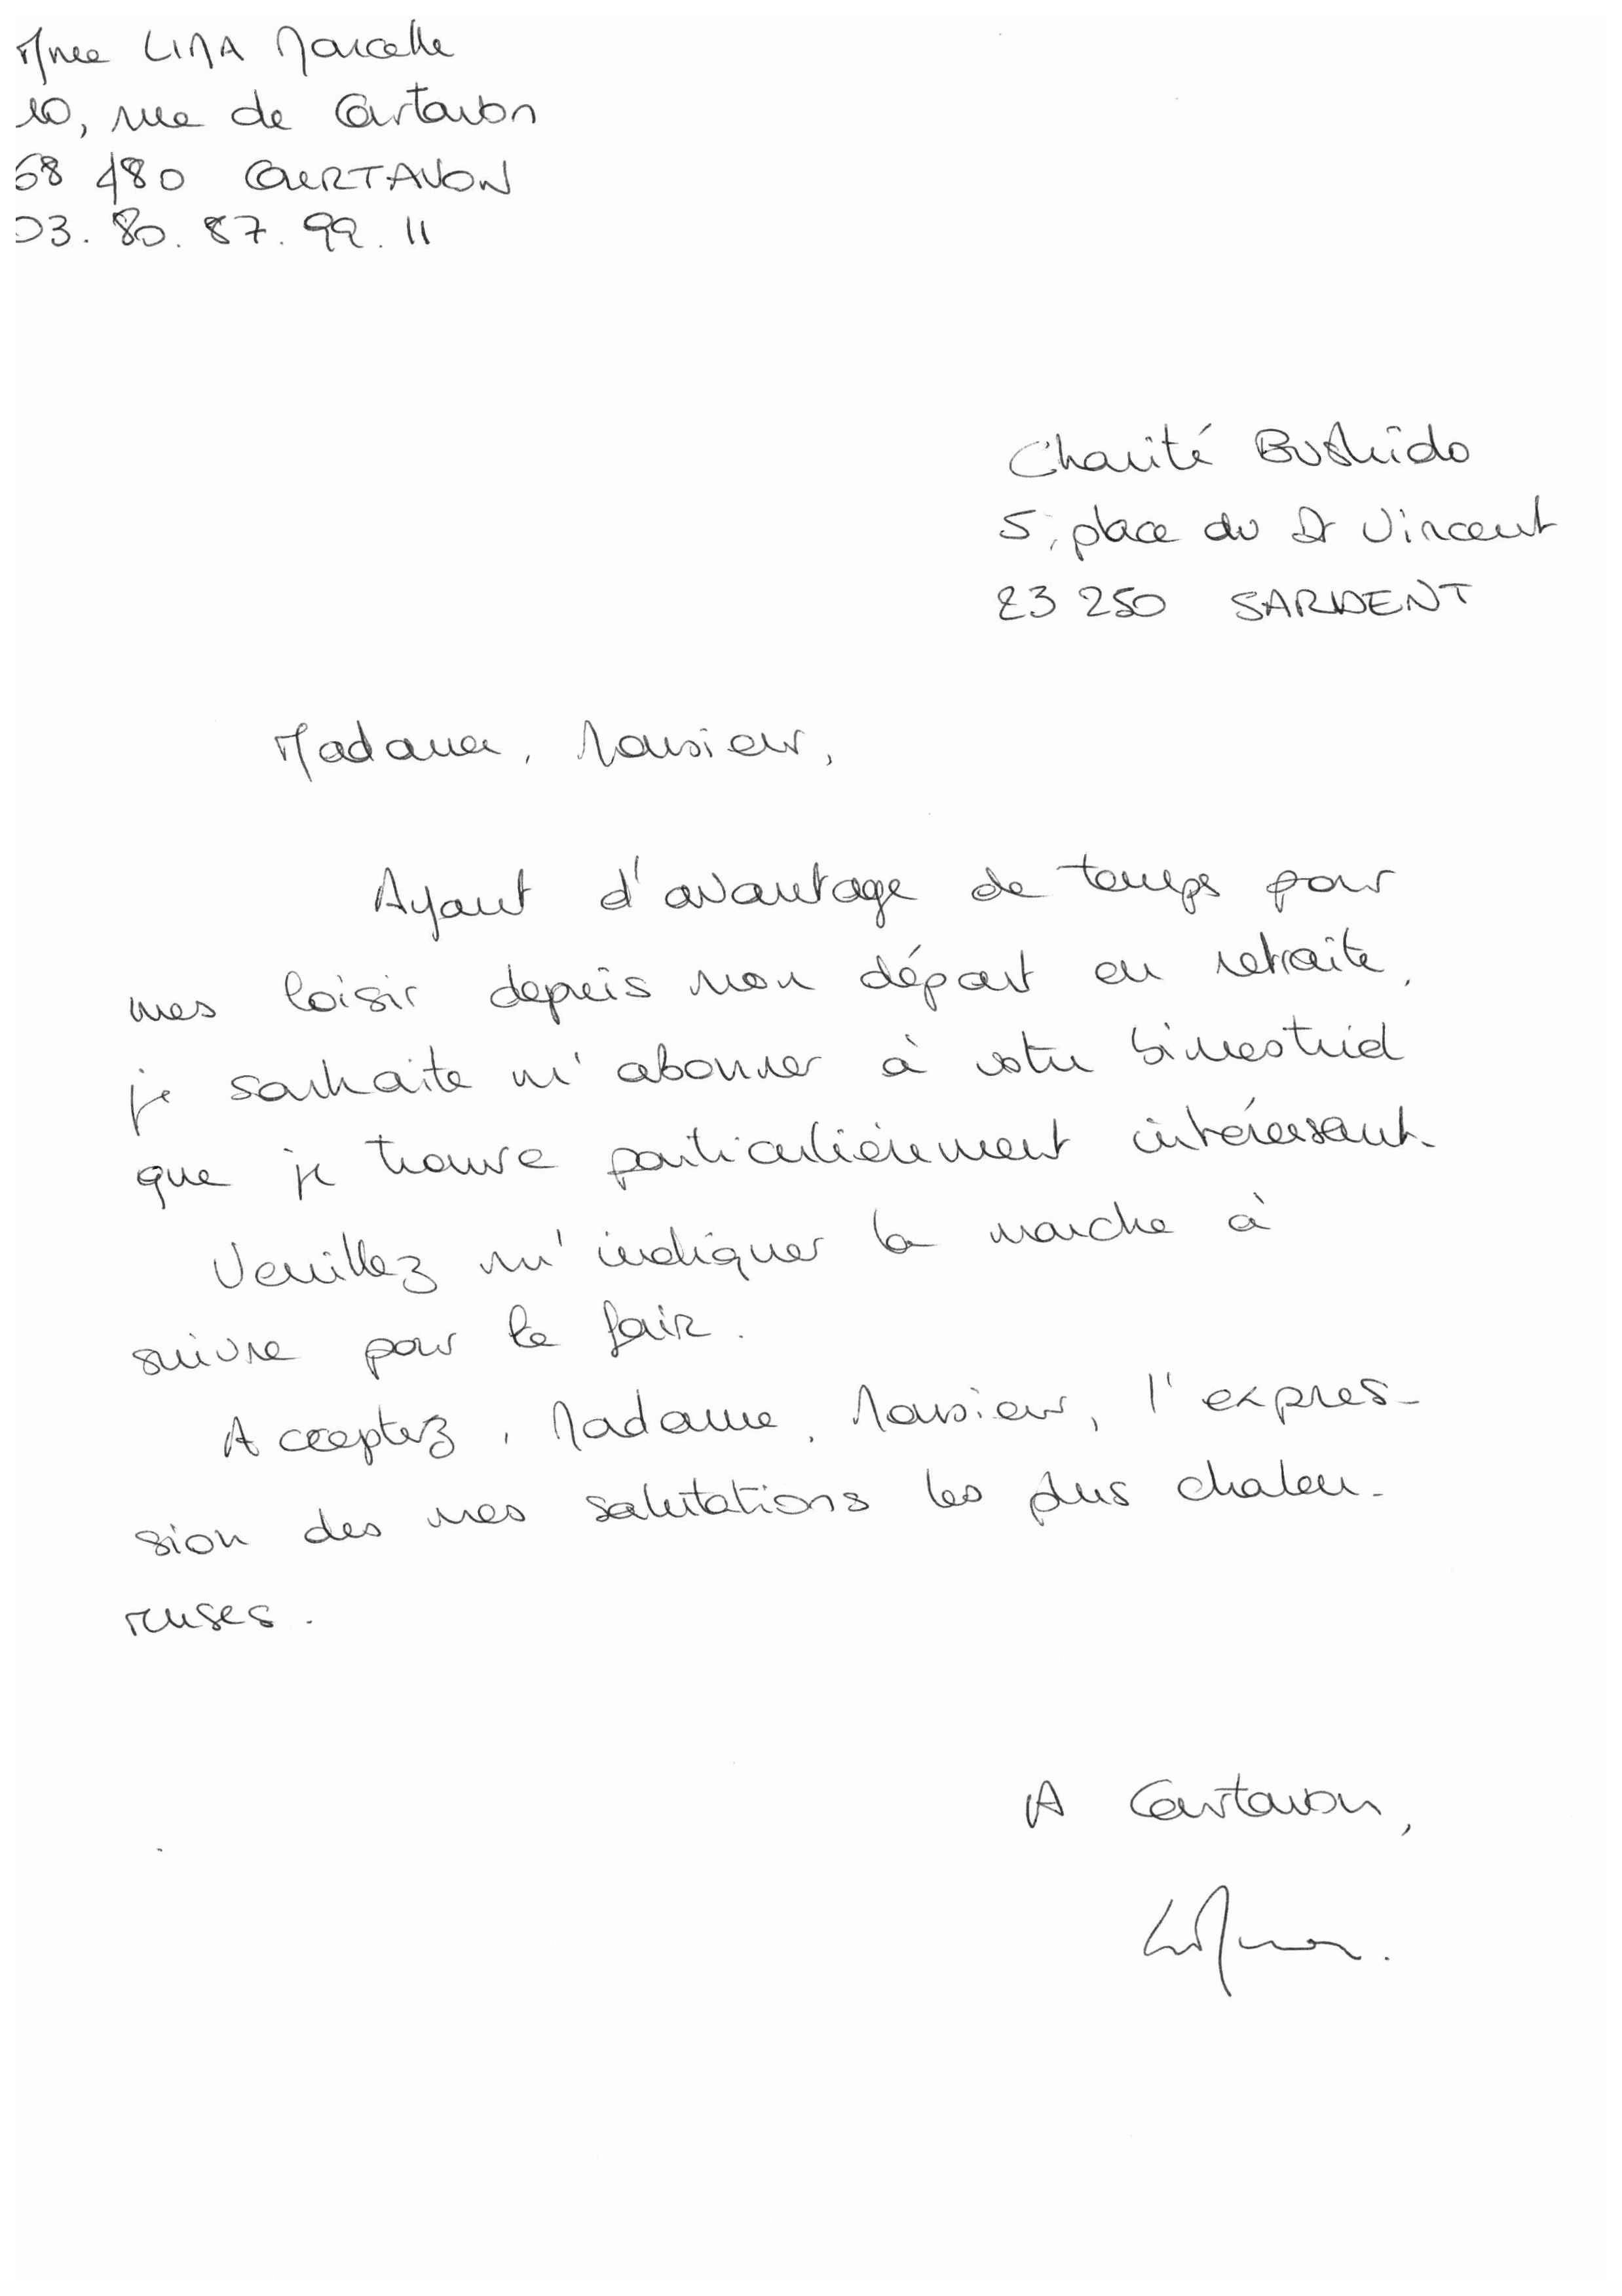 Mme LIMA Marcelle
10, rue de Courtavon
68 480 COURTAVON
03. 80. 87. 99. 11
Charité Bushido
5, place du Dr Vincent
23 250 SARDENT
Madame, Monsieur,
Ayant d'avantage de temps pour
mes loisir depuis mon départ en retraite,
je souhaite m'abonner à votre bimestriel
que je trouve particulièrement intéressant.
Veuillez m'indiquer la marche à
suivre pour le faire.
Acceptez, Madame, Monsieur, l'expres-
sion des mes salutations les plus chaleu-
reuses.
A Courtavon,